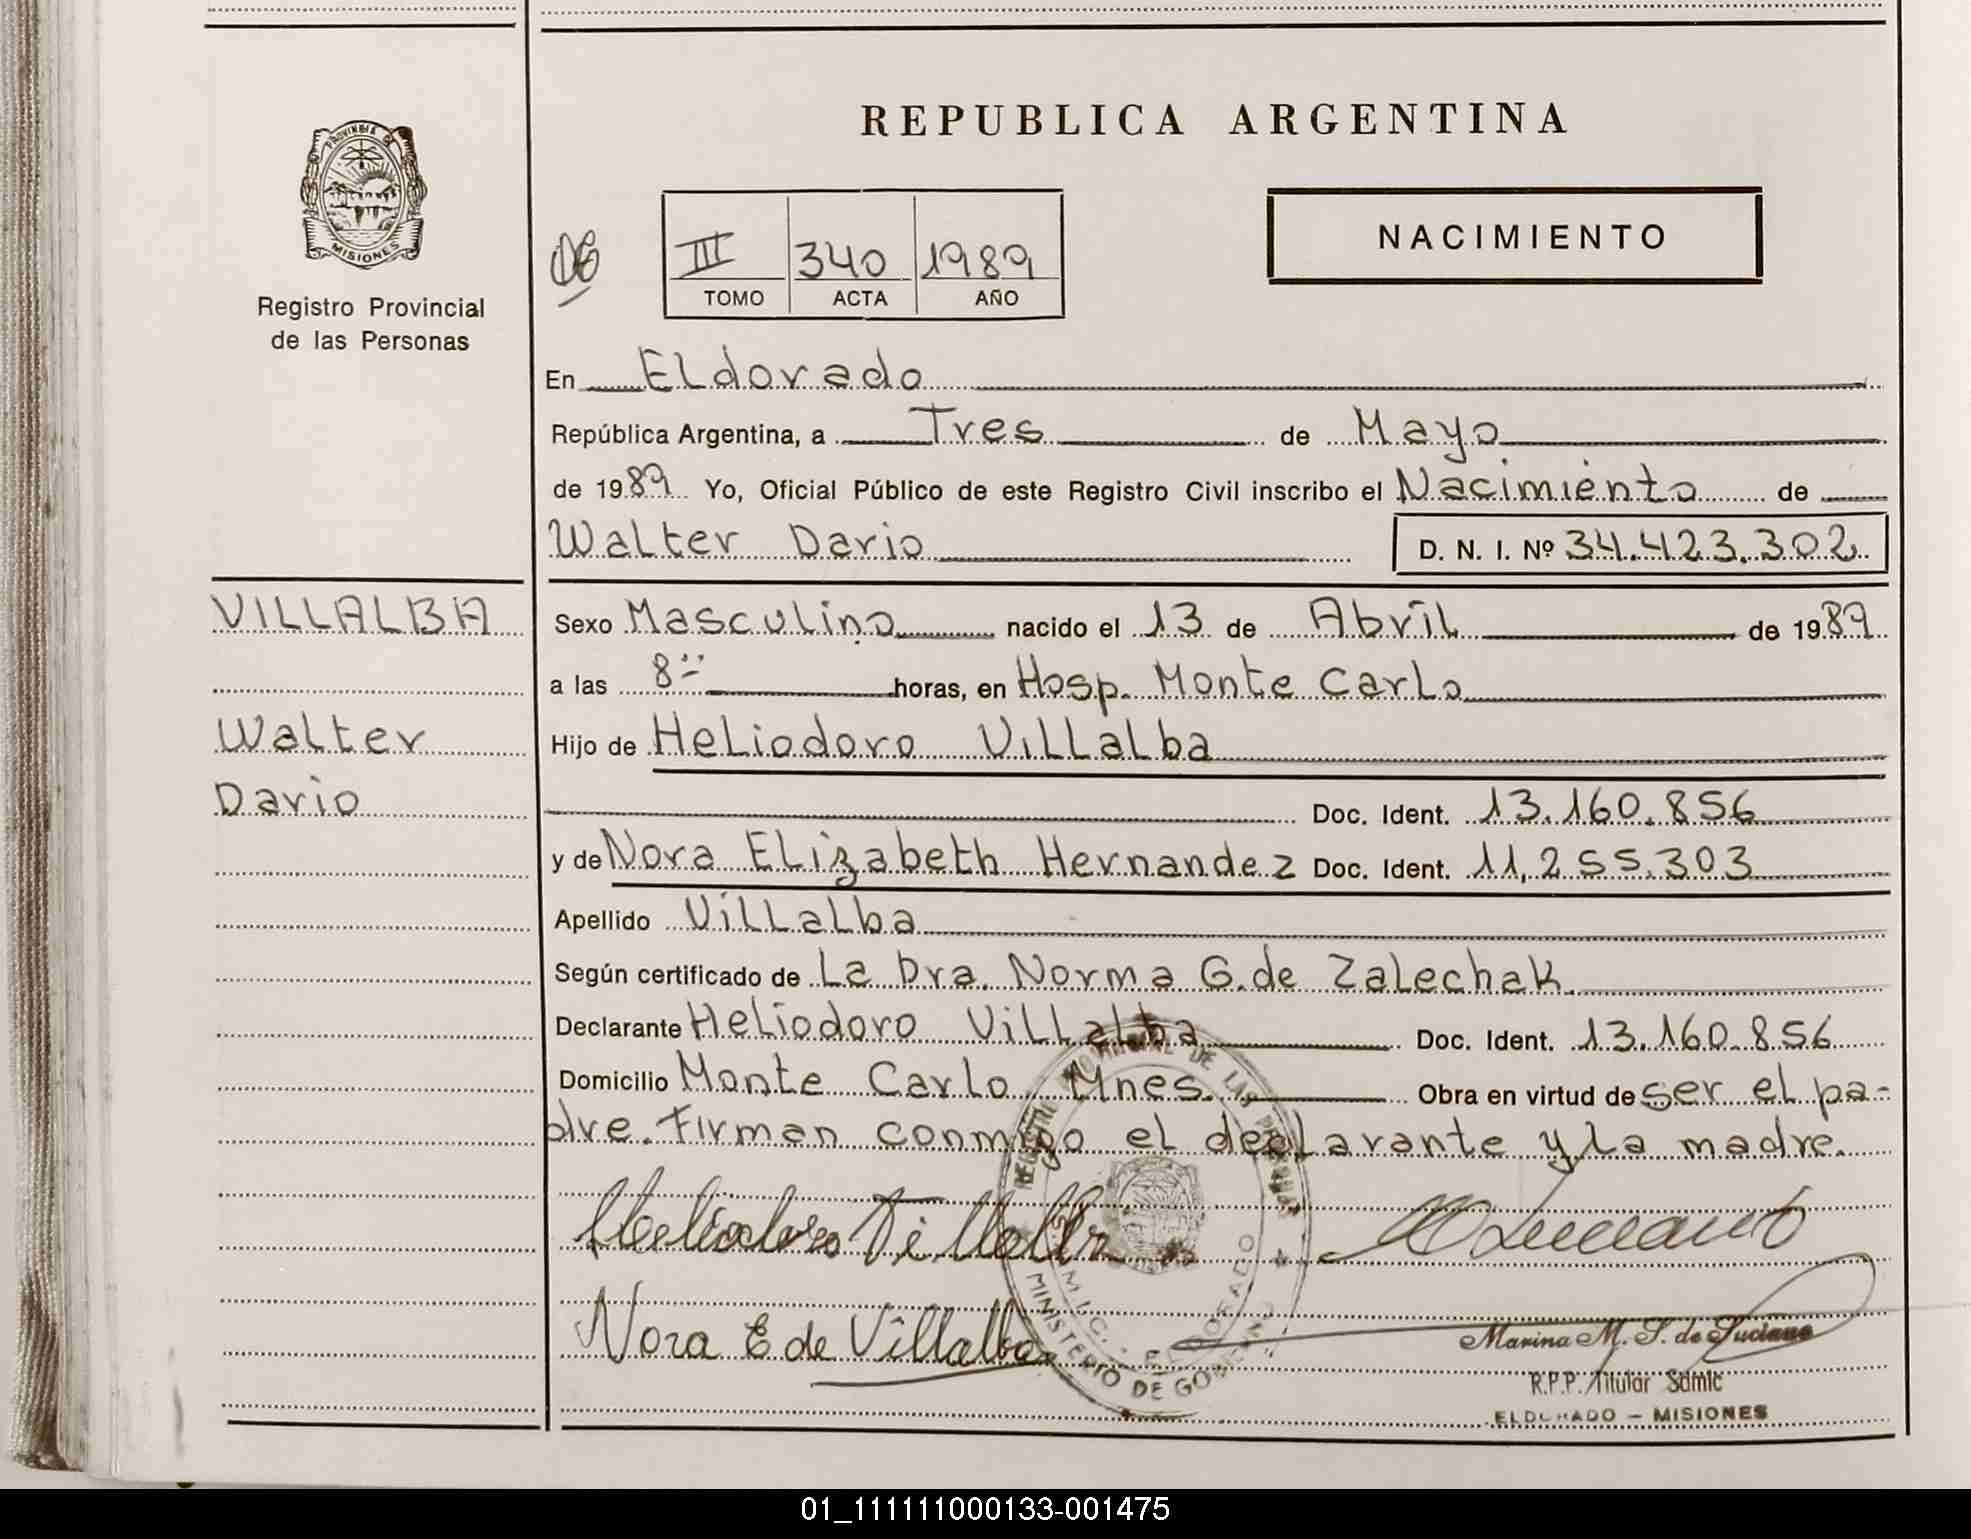 REPUBLICA ARGENTINA
PROVINCIA DE
MISIONES
Registro Provincial
de las Personas
III 340 1989
TOMO ACTA AÑO
NACIMIENTO
En Eldorado
República Argentina, a Tres de Mayo
de 1989 Yo, Oficial Público de este Registro Civil inscribo el Nacimiento de
Walter Dario D. N. I. Nº 34.423.302
VILLALBA
Walter
Dario
Sexo Masculino nacido el 13 de Abril de 1989
a las 8 horas, en Hosp. Monte Carlo
Hijo de Heliodoro Villalba
Doc. Ident. 13.160.856
y de Nora Elizabeth Hernandez Doc. Ident. 11,255.303
Apellido Villalba
Según certificado de La Dra. Norma G. de Zalechak
Declarante Heliodoro Villalba Doc. Ident. 13.160.856
Domicilio Monte Carlo Mnes. Obra en virtud de ser el pa-
dre. Firman conmigo el declarante y la madre.
Heliodoro Villalba
Nora E de Villalba
REGISTRO PROVINCIAL DE LAS PERSONAS
ELDORADO
MINISTERIO DE GOBIERNO
Marina M. S. de Luciano
R.P.P. Titular Sdmic
ELDORADO - MISIONES
01_111111000133-001475